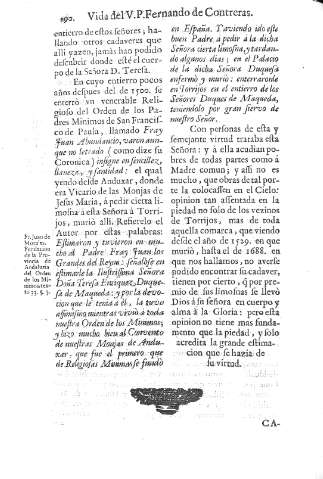 190. Vida del V.P. Fernando de Contreras.
entierro de estos señores, ha-
llando otros cadaveres que
allí yazen, jamàs han podido
descubrir donde esté el cuer-
po de la Señora D. Teresa.
En cuyo entierro pocos
años despues del de 1500. se
enterrò vn venerable Reli-
gioso del Orden de los Pa-
dres Minimos de San Francis-
co de Paula, llamado Fray
Juan Abundancio, varon aun-
que no letrado (como dize su
Coronica) insigne en sencillez,
llaneza, y santidad: el qual
yendo desde Anduxar, donde
era Vicario de las Monjas de
Jesus Maria, à pedir cierta li-
mosna à esta Señora à Torri-
jos, murió allì. Refierelo el
Autor por estas palabras:
Estimaron y tuvieron en mu-
cho al Padre Fray Juan los
Grandes del Reyno: señalòse en
estimarle la Ilustrissima Señora
Doña Teresa Enriquez, Duque-
sa de Maqueda: y por la devo-
cion que le tenia à èl, la tuvo
assimismo mientras viviò à toda
nuestra Orden de los Minimos,
y hizo mucho bien al Convento
de nuestras Monjas de Andu-
xar, que fue el primero que
de Religiosas Minimas se fundò
Fr. Juan de
Morales
Provincia
de
Andalucia
del Orden
de los Mi-
nimos
en España. Taviendo ido este
buen Padre à pedir à la dicha
Señora cierta limosna, y tardan-
do algunos dias; en el Palacio
de la dicha Señora Duquesa
enfermò y muriò: enterraronle
en Torrijos en el entierro de los
Señores Duques de Maqueda,
teniendolo por gran siervo de
nuestro Señor.
Con personas de esta y
semejante virtud trataba esta
Señora: y à ella acudian po-
bres de todas partes como à
Madre comun; y assi no es
mucho, que obras de tal por-
te la colocassen en el Cielo:
opinion tan assentada en la
piedad no solo de los vezinos
de Torrijos, mas de toda
aquella comarca, que viendo
desde el año de 1529. en que
murió, hasta el de 1688. en
que nos hallamos, no averse
podido encontrar su cadaver,
tienen por cierto, q̃ por pre-
mio de sus limosnas se llevò
Dios à su Señora en cuerpo y
alma à la Gloria: pero esta
opinion no tiene mas funda-
mento que la piedad, y solo
acredita la grande estima-
cion que se hazia de
su virtud.
CA-